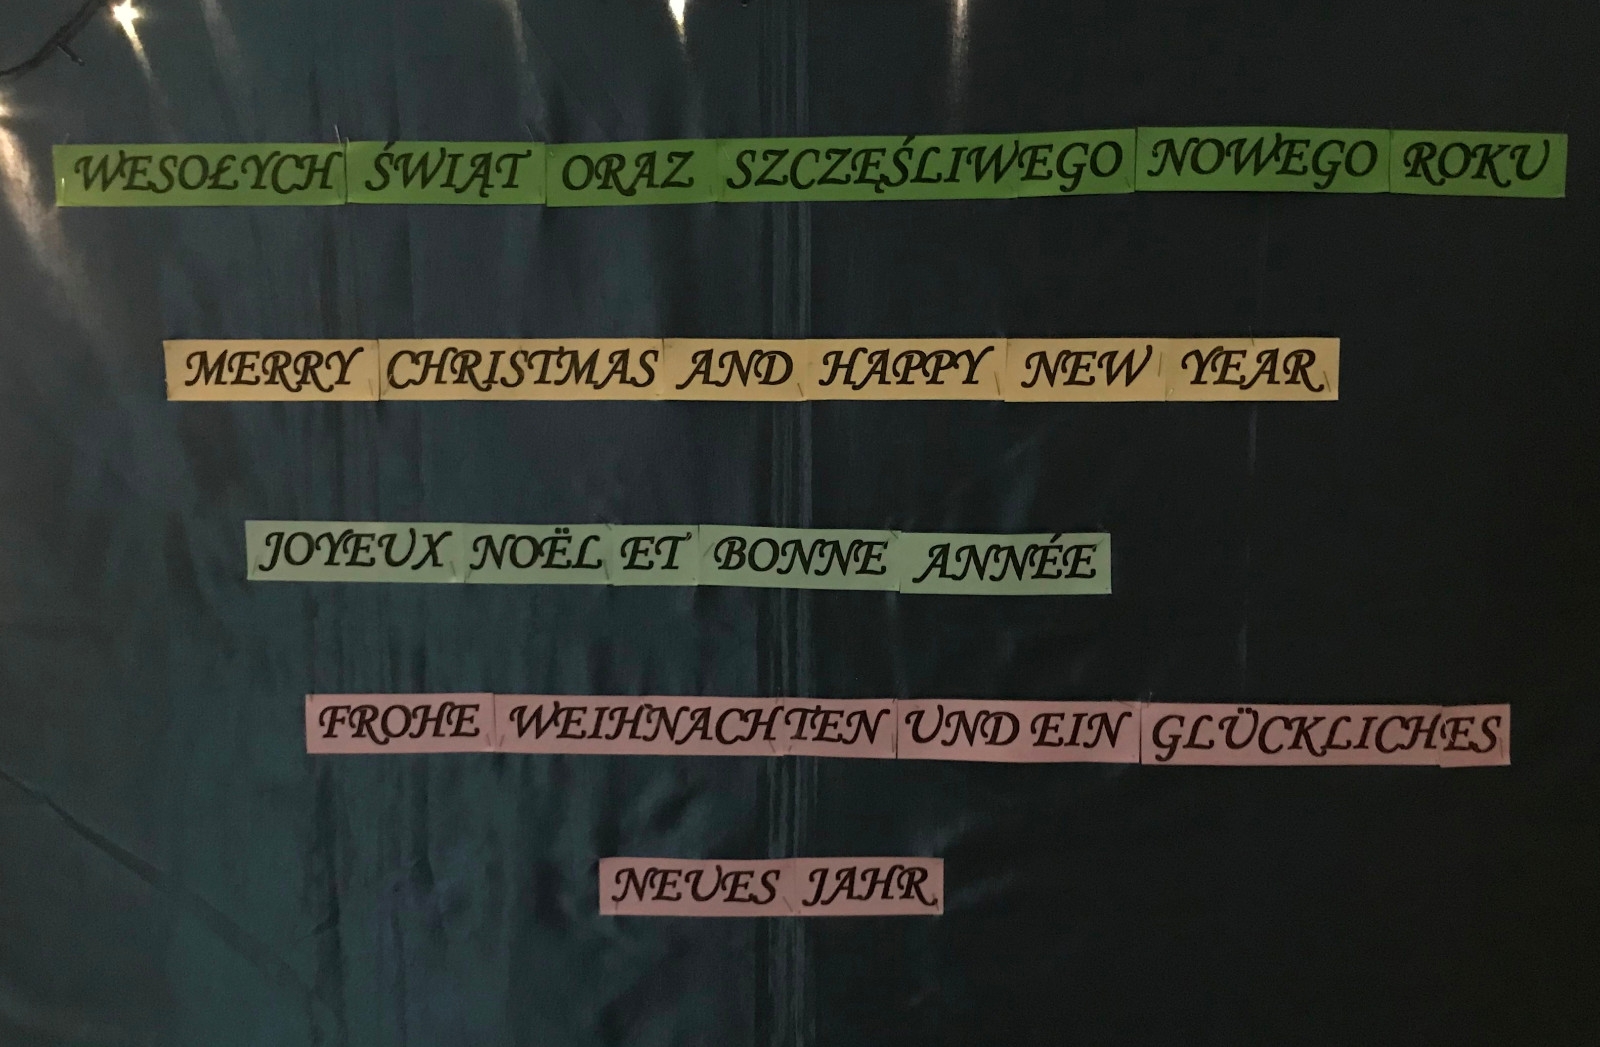 WESOŁYCH ŚWIĄT ORAZ SZCZĘŚLIWEGO NOWEGO ROKU
MERRY CHRISTMAS AND HAPPY NEW YEAR
JOYEUX NOËL ET BONNE ANNÉE
FROHE WEIHNACHTEN UND EIN GLÜCKLICHES
NEUES JAHR